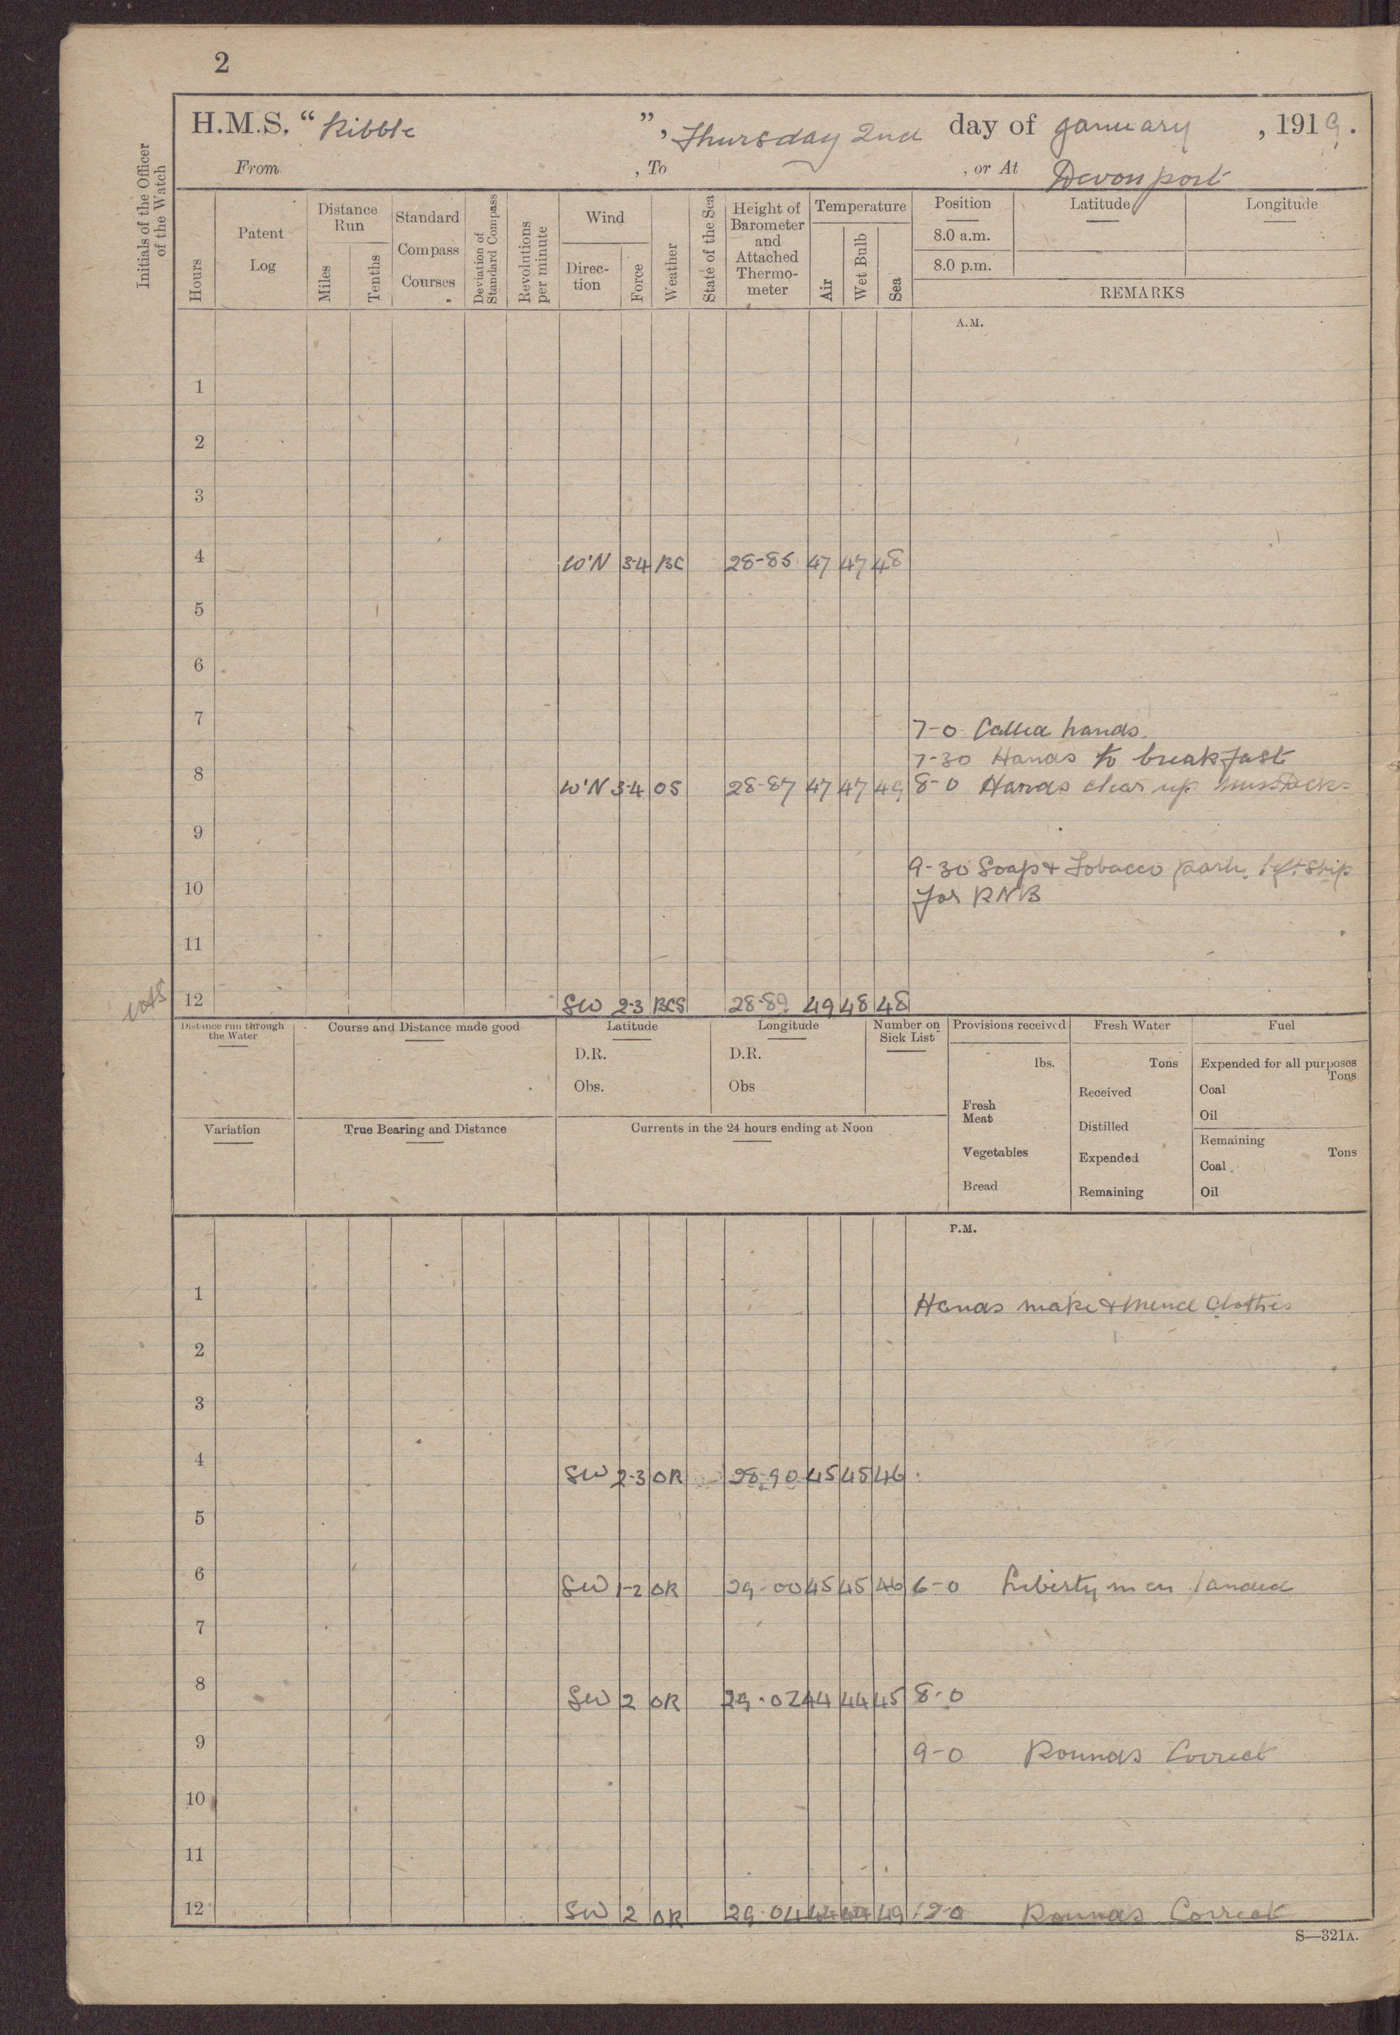 2
H.M.S. “Ribble ”, Thursday 2nd day of January , 1919.
From , To , or At Devonport
Initials of the Officer of the Watch
Hours
Patent Log
Distance Run
Miles
Tenths
Standard Compass Courses
Deviation of Standard Compass
Revolutions per minute
Wind
Direction
Force
Weather
State of the Sea
Height of Barometer and Attached Thermometer
Temperature
Air
Wet Bulb
Sea
Position Latitude Longitude
8.0 a.m.
8.0 p.m.
REMARKS
A.M.
1
2
3
4 W'N 3-4 BC 28-85 47 47 48
5
6
7 7-0 Called hands.
7-30 Hands to breakfast
8 W'N 3-4 OS 28-87 47 47 49 8-0 Hands clear up Mess Decks
9
9-30 Soap & Tobacco party left ship
10 for RNB
11
12 SW 2-3 BCS 28-89 49 48 48
Distance run through the Water
Course and Distance made good
Latitude
D.R.
Obs.
Longitude
D.R.
Obs
Number on Sick List
Provisions received
lbs.
Fresh Meat
Vegetables
Bread
Fresh Water
Tons
Received
Distilled
Expended
Remaining
Fuel
Expended for all purposes
Tons
Coal
Oil
Remaining
Tons
Coal
Oil
Variation
True Bearing and Distance
Currents in the 24 hours ending at Noon
P.M.
1 Hands make & mend Clothes
2
3
4 SW 2-3 OR 28-90 45 45 46
5
6 SW 1-2 OR 29-00 45 45 46 6-0 Liberty men landed
7
8 SW 2 OR 29-02 44 44 45 8-0
9 9-0 Rounds Correct
10
11
12 SW 2 OR 29-04 44 44 49 12-0 Rounds Correct
S—321A.